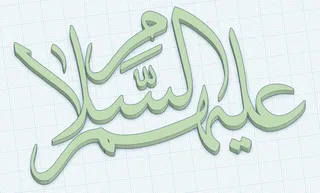 عليهم السلام